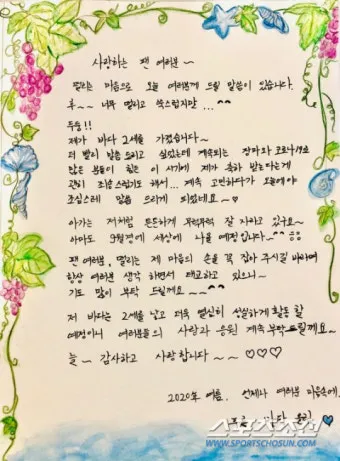 사랑하는 팬 여러분~
떨리는 마음으로 오늘 여러분께 드릴 말씀이 있습니다.
후~~ 너무 떨리고 쑥스럽지만...^^
두둥!!
제가 바다 2세를 가졌습니다~
더 빨리 말씀 드리고 싶었는데 계속되는 장마와 코로나19로
많은 분들이 힘든 이 시기에 제가 축하 받는다는게
괜히 조심스럽기도 해서... 계속 고민하다가 오늘에야
조심스레 말씀 드리게 되었네요~♡
아가는 저처럼 튼튼하게 무럭무럭 잘 자라고 있구요~
아마도 9월경에 세상에 나올 예정입니다~^^
팬 여러분, 떨리는 제 마음의 손을 꼭 잡아 주시길 바라며
항상 여러분 생각 하면서 태교하고 있으니~
기도 많이 부탁 드릴께요~~^^
저 바다는 2세를 낳고 더욱 열심히 성실하게 활동할
예정이니 여러분들의 사랑과 응원 계속 부탁드릴께요~
늘~ 감사하고 사랑합니다~~♡♡♡
2020년 여름. 언제나 여러분 마음속에.
바다 올림
스포츠조선
WWW.SPORTSCHOSUN.COM